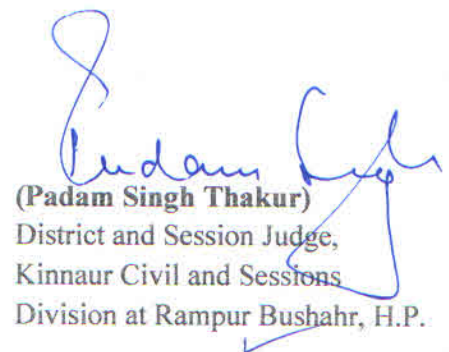 Padam Singh
(Padam Singh Thakur)
District and Session Judge,
Kinnaur Civil and Sessions
Division at Rampur Bushahr, H.P.